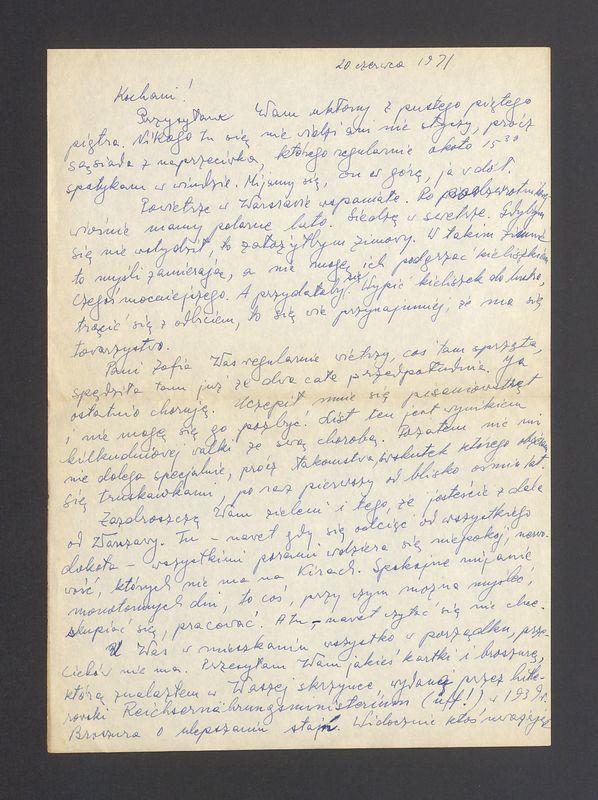 20 czerwca 1971
Kochani!
Przesyłam Wam ukłony z pustego piątego
piętra. Nikogo tu się nie widzi ani nie słyszy, prócz
sąsiada z naprzeciwka, którego regularnie około 15³⁰
spotykam w windzie. Mijamy się, on w górę, ja w dół.
Powietrze w Warszawie wspaniałe. Po podzwrotnikowej
wiośnie mamy polarne lato. Siedzę w swetrze. Gdybym
się nie wstydził, to założyłbym zimowy. W takim zimnie
to myśli zamierają, a nie mogę ich podgrzać kieliszkiem
czegoś mocniejszego. A przydałoby się. Wypić kieliszek do lustra,
trącić się z odbiciem, to się wie przynajmniej, że ma się
towarzystwo.
Pani Zofia Was regularnie wietrzy, coś tam sprząta,
spędziła tam już ze dwa całe przedpołudnia. Ja
ostatnio choruję. Uczepił mnie się pisaniowstręt
i nie mogę się go pozbyć. List ten jest wynikiem
kilkudniowej walki ze swą chorobą. Pozatem nic mi
nie dolega specjalnie, prócz łakomstwa, wskutek którego objadam
się truskawkami, po raz pierwszy od blisko ośmiu lat.
Zazdroszczę Wam zieleni i tego, że jesteście z dala
od Warszawy. Tu – nawet gdy się odciąć od wszystkiego
dokoła – wszystkimi porami wdziera się niepokój, nerwo-
wość, których nie ma na Kirach. Spokojne mijanie
monotonnych dni, to coś, przy czym można myśleć,
skupiać się, pracować. A tu – nawet czytać się nie chce.
U Was w mieszkaniu wszystko w porządku, prze-
cieków nie ma. Przesyłam Wam jakieś kartki i broszurę,
którą znalazłem w Waszej skrzynce, wydaną przez hitle-
rowski Reichsernährungsministerium (uff!) w 1939 r.
Broszura o ulepszaniu stajn. Widocznie ktoś uważając